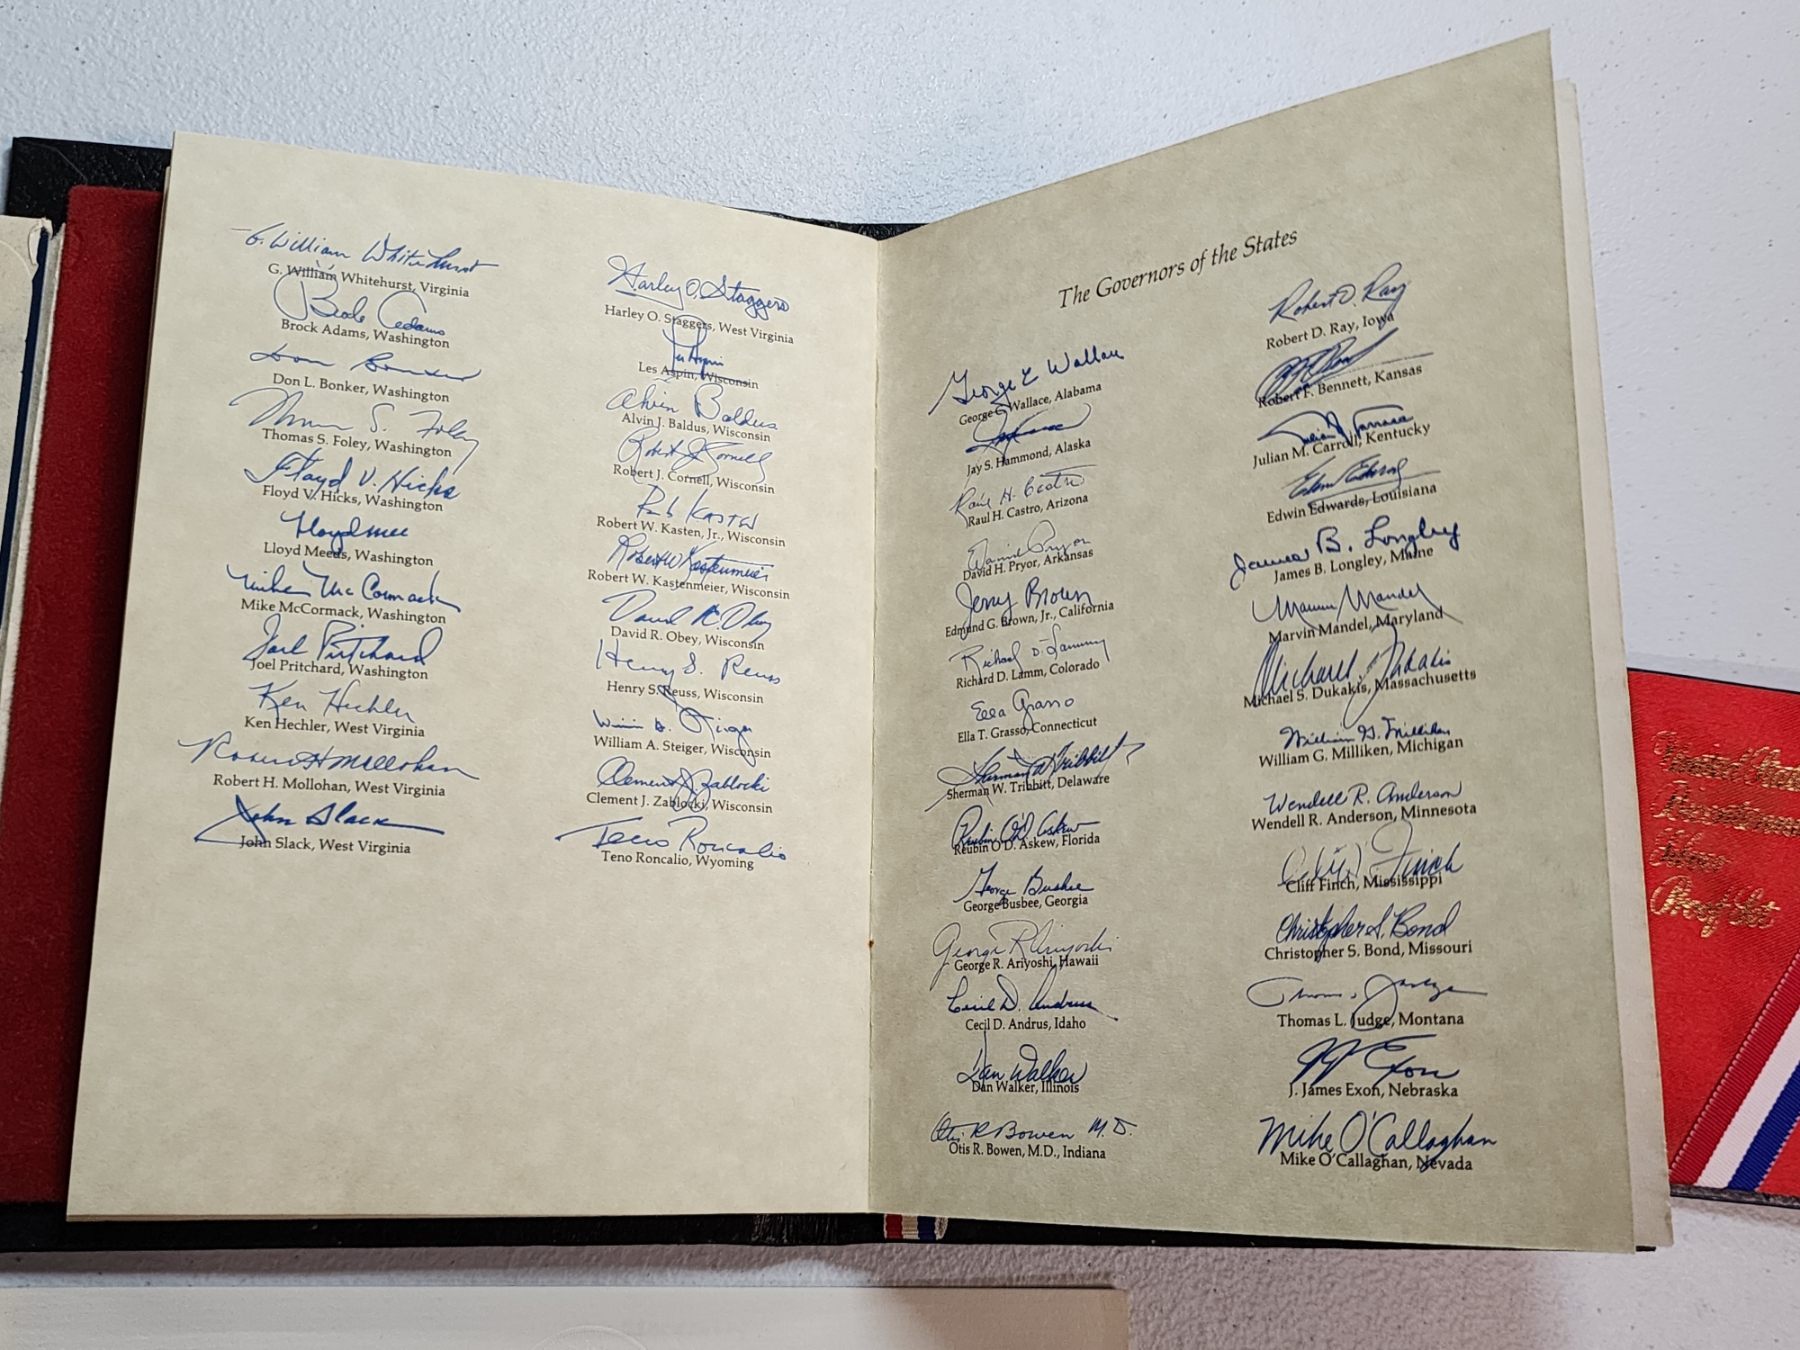 G. William Whitehurst
G. William Whitehurst, Virginia
Brock Adams
Brock Adams, Washington
Don Bonker
Don L. Bonker, Washington
Thomas S. Foley
Thomas S. Foley, Washington
Floyd V. Hicks
Floyd V. Hicks, Washington
Lloyd Meeds
Lloyd Meeds, Washington
Mike McCormack
Mike McCormack, Washington
Joel Pritchard
Joel Pritchard, Washington
Ken Hechler
Ken Hechler, West Virginia
Robert H Mollohan
Robert H. Mollohan, West Virginia
John Slack
John Slack, West Virginia
Harley O. Staggers
Harley O. Staggers, West Virginia
Les Aspin
Les Aspin, Wisconsin
Alvin Baldus
Alvin J. Baldus, Wisconsin
Robert J Cornell
Robert J. Cornell, Wisconsin
Bob Kasten
Robert W. Kasten, Jr., Wisconsin
Robert W Kastenmeier
Robert W. Kastenmeier, Wisconsin
David R. Obey
David R. Obey, Wisconsin
Henry S. Reuss
Henry S. Reuss, Wisconsin
William A. Steiger
William A. Steiger, Wisconsin
Clement J Zablocki
Clement J. Zablocki, Wisconsin
Teno Roncalio
Teno Roncalio, Wyoming
The Governors of the States
George C Wallace
George C. Wallace, Alabama
Jay S. Hammond, Alaska
Raúl H. Castro
Raul H. Castro, Arizona
David Pryor
David H. Pryor, Arkansas
Jerry Brown
Edmund G. Brown, Jr., California
Richard D. Lamm
Richard D. Lamm, Colorado
Ella Grasso
Ella T. Grasso, Connecticut
Sherman W Tribbitt
Sherman W. Tribbitt, Delaware
Reubin O'D. Askew
Reubin O'D. Askew, Florida
George Busbee
George Busbee, Georgia
George R Ariyoshi
George R. Ariyoshi, Hawaii
Cecil D. Andrus
Cecil D. Andrus, Idaho
Dan Walker
Dan Walker, Illinois
Otis R Bowen M.D.
Otis R. Bowen, M.D., Indiana
Robert D. Ray
Robert D. Ray, Iowa
Robert F. Bennett, Kansas
Julian M. Carroll, Kentucky
Edwin Edwards
Edwin Edwards, Louisiana
James B. Longley
James B. Longley, Maine
Marvin Mandel
Marvin Mandel, Maryland
Michael S. Dukakis
Michael S. Dukakis, Massachusetts
William G. Milliken
William G. Milliken, Michigan
Wendell R. Anderson
Wendell R. Anderson, Minnesota
Cliff Finch
Cliff Finch, Mississippi
Christopher S. Bond
Christopher S. Bond, Missouri
Thomas L. Judge
Thomas L. Judge, Montana
J J Exon
J. James Exon, Nebraska
Mike O'Callaghan
Mike O'Callaghan, Nevada
United
Proof Set